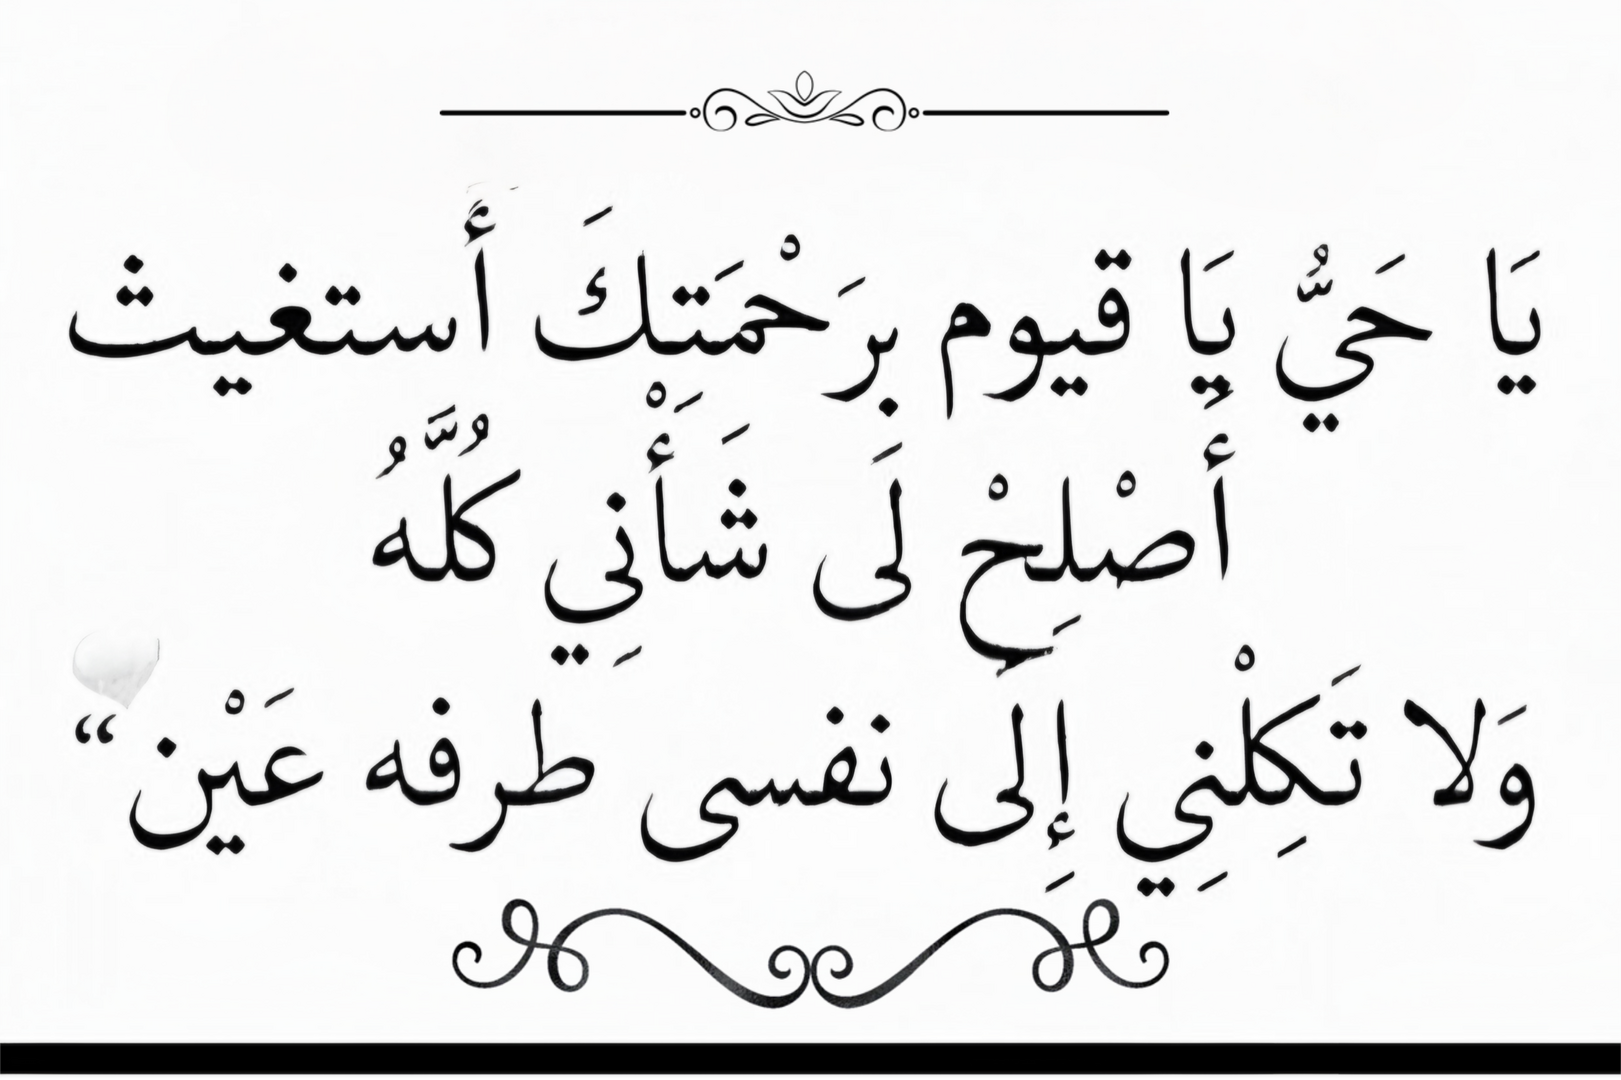 يَا حَيُّ يَا قيوم برَحْمَتكَ أَستغيث
أَصْلِحْ لَى شَأْنِي كُلَّهُ
وَلا تَكِلْنِي إِلَى نفسى طرفه عَيْن“